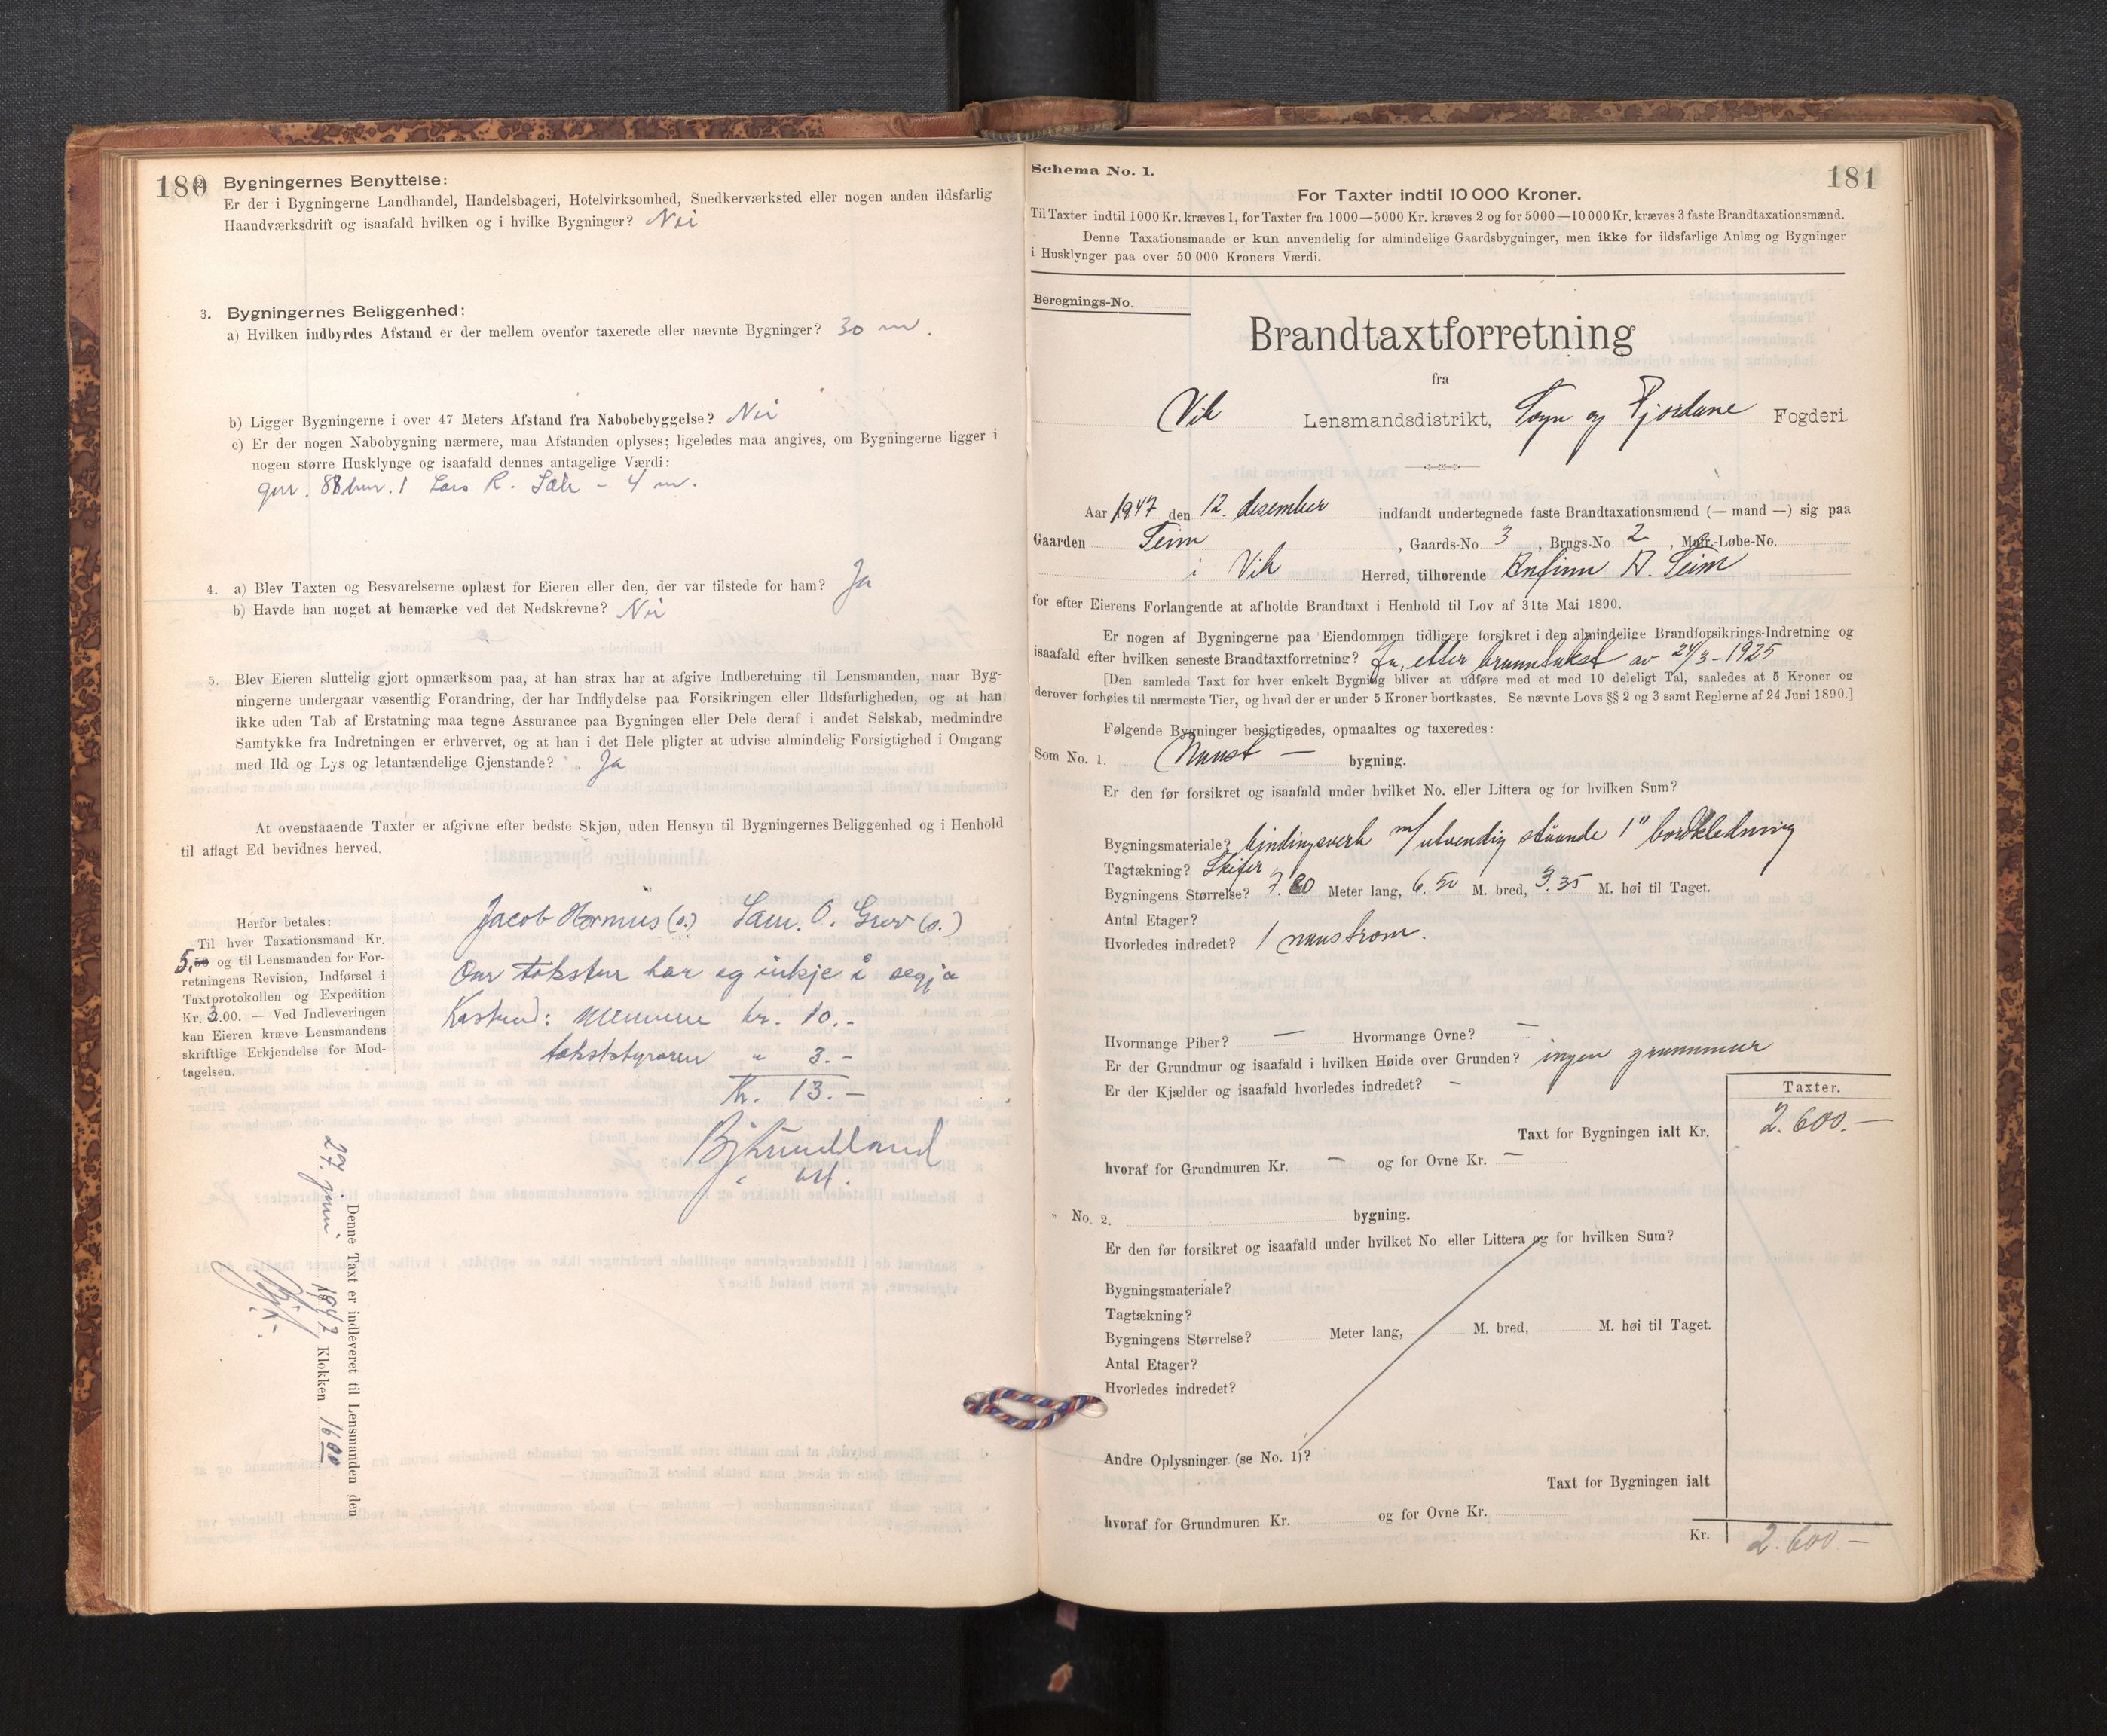 180
Bygningernes Benyttelse:
Er der i Bygningerne Landhandel, Handelsbageri, Hotelvirksomhed, Snedkerværksted eller nogen anden ildsfarlig
Haandværksdrift og isaafald hvilken og i hvilke Bygninger? Nei
3. Bygningernes Beliggenhed:
a) Hvilken indbyrdes Afstand er der mellem ovenfor taxerede eller nævnte Bygninger? 30 m.
b) Ligger Bygningerne i over 47 Meters Afstand fra Nabobebyggelse? Nei
c) Er der nogen Nabobygning nærmere, maa Afstanden oplyses; ligeledes maa angives, om Bygningerne ligger i
nogen større Husklynge og isaafald dennes antagelige Værdi:
gnr. 88 bnr. 1 Lars R. - 4 m.
4. a) Blev Taxten og Besvarelserne oplæst for Eieren eller den, der var tilstede for ham? Ja
b) Havde han noget at bemærke ved det Nedskrevne? Nei
5. Blev Eieren sluttelig gjort opmærksom paa, at han strax har at afgive Indberetning til Lensmanden, naar Byg-
ningerne undergaar væsentlig Forandring, der har Indflydelse paa Forsikringen eller Ildsfarligheden, og at han
ikke uden Tab af Erstatning maa tegne Assurance paa Bygningen eller Dele deraf i andet Selskab, medmindre
Samtykke fra Indretningen er erhvervet, og at han i det Hele pligter at udvise almindelig Forsigtighed i Omgang
med Ild og Lys og letantændelige Gjenstande? Ja
At ovenstaaende Taxter er afgivne efter bedste Skjøn, uden Hensyn til Bygningernes Beliggenhed og i Henhold
til aflagt Ed bevidnes herved.
Herfor betales:
Til hver Taxationsmand Kr.
5,00 og til Lensmanden for For-
retningens Revision, Indførsel i
Taxtprotokollen og Expedition
Kr. 3.00. — Ved Indleveringen
kan Eieren kræve Lensmandens
skriftlige Erkjendelse for Mod-
tagelsen.
Jacob Hormus (s.) Sam. O. Grov (s.)
Om taksten har eg inkje å segja
Kostnad: Mennene kr. 10.-
takststyraren " 3.-
Kr. 13.-
Denne Taxt er indleveret til Lensmanden den
27. juni 1947 Klokken 16 00
Schema No. 1.
181
For Taxter indtil 10 000 Kroner.
Til Taxter indtil 1000 Kr. kræves 1, for Taxter fra 1000—5000 Kr. kræves 2 og for 5000—10 000 Kr. kræves 3 faste Brandtaxationsmænd.
Denne Taxationsmaade er kun anvendelig for almindelige Gaardsbygninger, men ikke for ildsfarlige Anlæg og Bygninger
i Husklynger paa over 50 000 Kroners Værdi.
Beregnings-No.
Brandtaxtforretning
fra
Vik Lensmandsdistrikt, Sogn og Fjordane Fogderi.
Aar 1947 den 12. desember indfandt undertegnede faste Brandtaxationsmænd (— mand —) sig paa
Gaarden Seim, Gaards-No. 3, Brugs-No. 2, Matr.-Løbe-No.
i Vik Herred, tilhørende Anfinn A. Seim
for efter Eierens Forlangende at afholde Brandtaxt i Henhold til Lov af 31te Mai 1890.
Er nogen af Bygningerne paa Eiendommen tidligere forsikret i den almindelige Brandforsikrings-Indretning og
isaafald efter hvilken seneste Brandtaxtforretning? Ja, etter branntakst av 24/3-1925
[Den samlede Taxt for hver enkelt Bygning bliver at udføre med et med 10 deleligt Tal, saaledes at 5 Kroner og
derover forhøies til nærmeste Tier, og hvad der er under 5 Kroner bortkastes. Se nævnte Lovs §§ 2 og 3 samt Reglerne af 24 Juni 1890.]
Følgende Bygninger besigtigedes, opmaaltes og taxeredes:
Som No. 1. Naust — bygning.
Er den før forsikret og isaafald under hvilket No. eller Littera og for hvilken Sum?
Bygningsmateriale? bindingsverk m/ utvendig stående 1" bordkledning
Tagtækning? Skifer
Bygningens Størrelse? 7.80 Meter lang, 6.50 M. bred, 3.35 M. høi til Taget.
Antal Etager?
Hvorledes indredet? 1 naustrom.
Hvormange Piber? — Hvormange Ovne? —
Er der Grundmur og isaafald i hvilken Høide over Grunden? ingen grunnmur
Er der Kjælder og isaafald hvorledes indredet? -
Taxter.
Taxt for Bygningen ialt Kr. 2.600.—
hvoraf for Grundmuren Kr. — og for Ovne Kr. —
" No. 2. bygning.
Er den før forsikret og isaafald under hvilket No. eller Littera og for hvilken Sum?
Bygningsmateriale?
Tagtækning?
Bygningens Størrelse? Meter lang, M. bred, M. høi til Taget.
Antal Etager?
Hvorledes indredet?
Andre Oplysninger (se No. 1)?
Taxt for Bygningen ialt
hvoraf for Grundmuren Kr. og for Ovne Kr.
Kr. 2.600.—